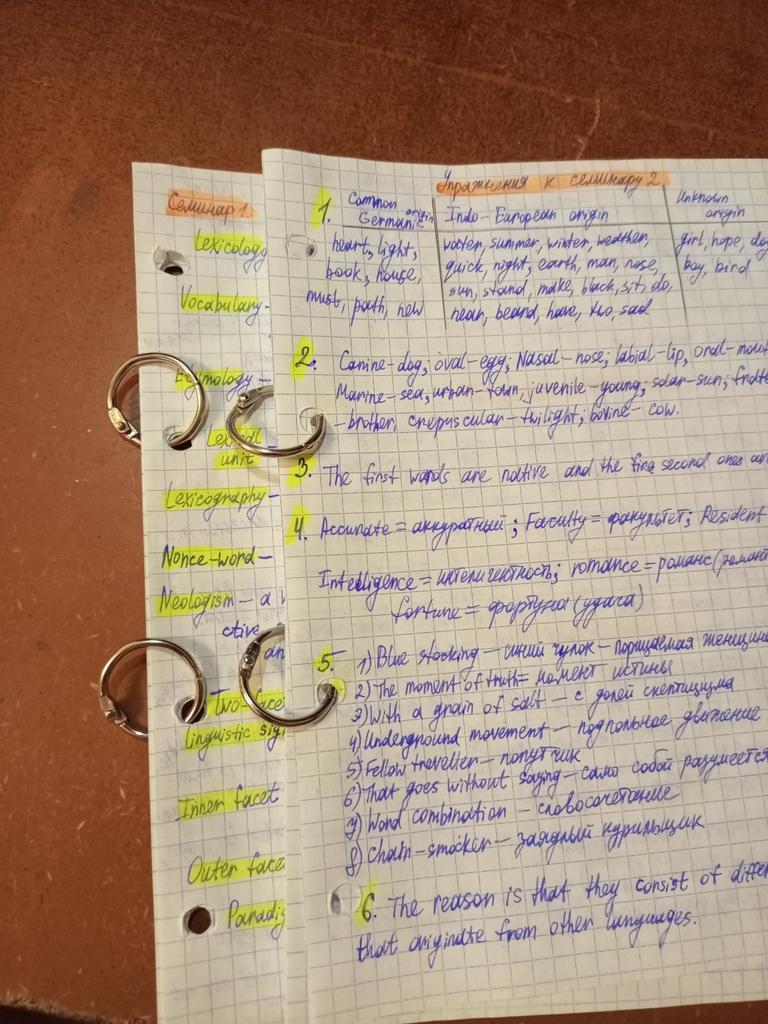 Семинар 1.
Lexicology
Vocabulary-
Etymology-
Lexical
unit
Lexicography-
Nonce-word-
Neologism- a
ctive
an
Two-face
linguistic sig
Inner facet
Outer face
Paradig
Упражнения к семинару 2
1. Common origin Germanic | Indo-European origin | Unknown origin
heart, light, | water, summer, winter, weather, | girl, hope, do
book, house, | quick, night, earth, man, nose, | boy, bird
must, path, new | sun, stand, make, black, sit, do,
hear, beard, have, two, sad
2. Canine-dog; oval-egg; Nasal-nose; labial-lip, oral-mout
Marine-sea, urban-town, juvenile-young; solar-sun; frate
-brother, crepuscular-twilight; bovine-cow.
3. The first words are native and the firs second ones ar
4. Accurate = аккуратный; Faculty = факультет; Resident
Intelligence = интелигентность; romance = романс (роман
fortune = фортуна (удача)
5. 1) Blue stocking - синий чулок - порицаемая женщина
2) The moment of truth = момент истины
3) With a grain of salt - с долей скептицизма
4) Underground movement - подпольное движение
5) Fellow traveller - попутчик
6) That goes without saying - само собой разумеется
7) Word combination - словосочетание
8) Chain-smocker - заядлый курильщик
6. The reason is that they consist of diffe
that originate from other languages.